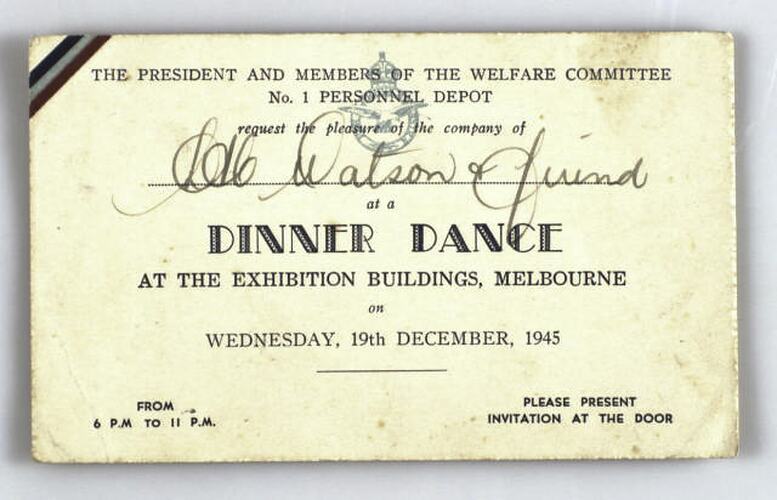 THE PRESIDENT AND MEMBERS OF THE WELFARE COMMITTEE
No. 1 PERSONNEL DEPOT
request the pleasure of the company of
Watson & friend
at a
DINNER DANCE
AT THE EXHIBITION BUILDINGS, MELBOURNE
on
WEDNESDAY, 19th DECEMBER, 1945
FROM
6 P.M TO 11 P.M.
PLEASE PRESENT
INVITATION AT THE DOOR